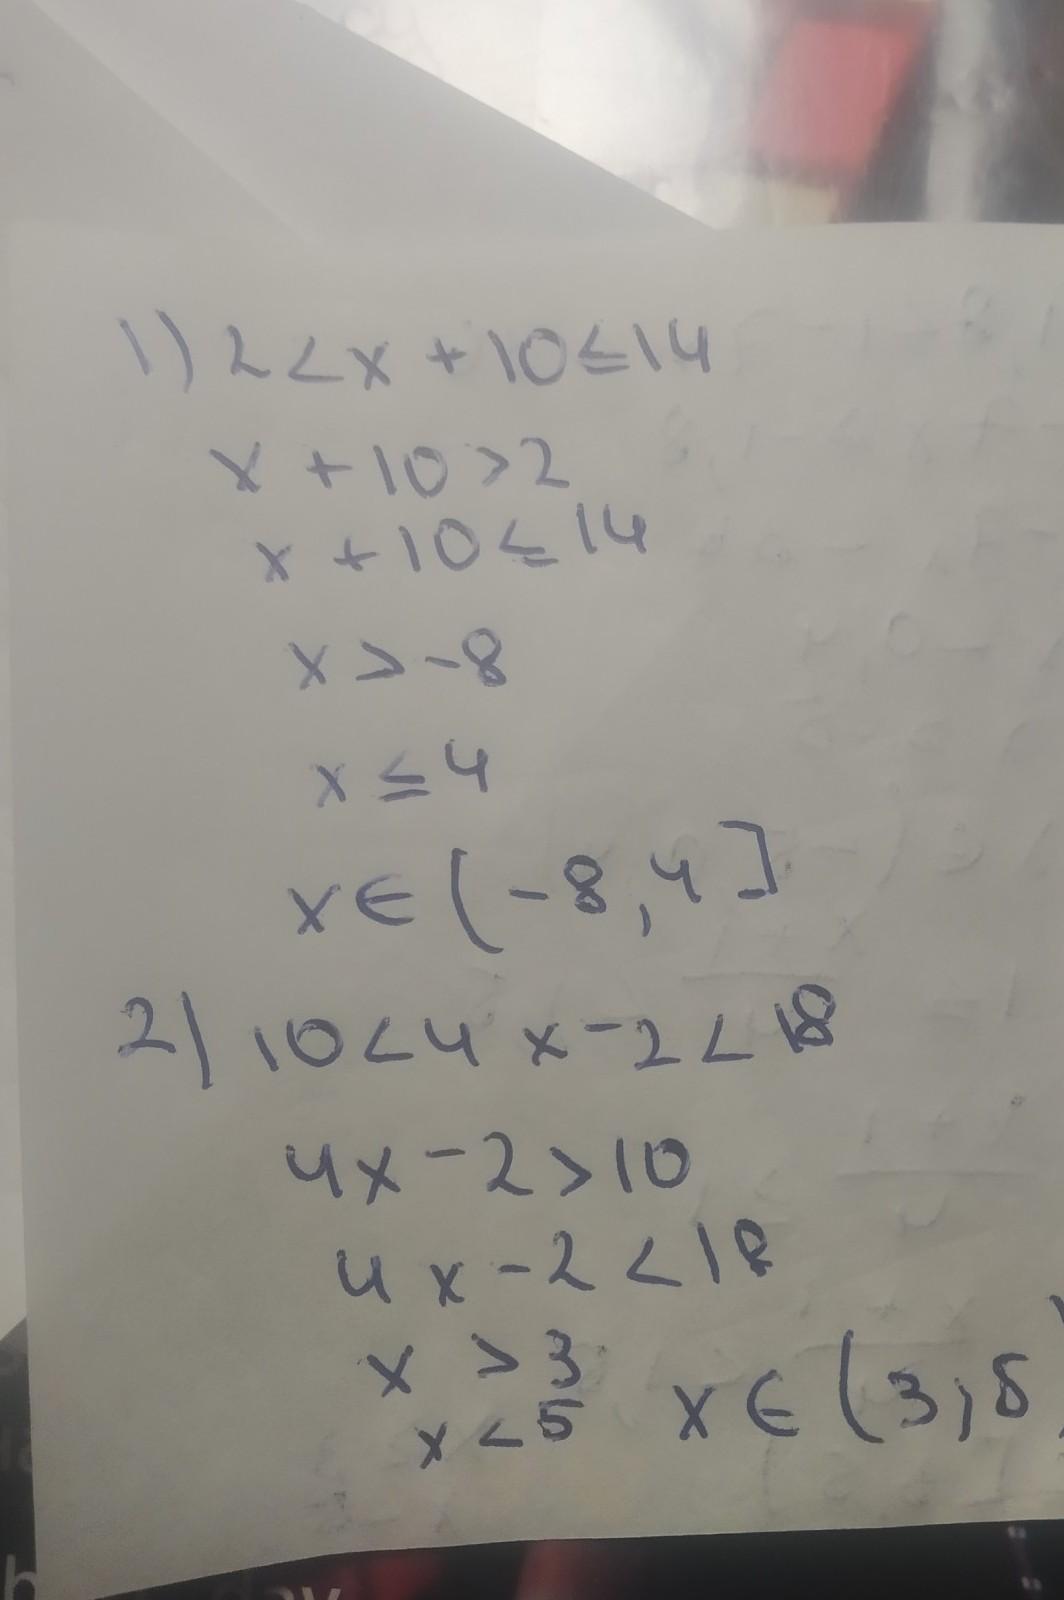 1) 2 < x + 10 ≤ 14
x + 10 > 2
x + 10 ≤ 14
x > -8
x ≤ 4
x ∈ (-8, 4]
2) 10 < 4x - 2 < 18
4x - 2 > 10
4x - 2 < 18
x > 3
x < 5 x ∈ (3, 5)